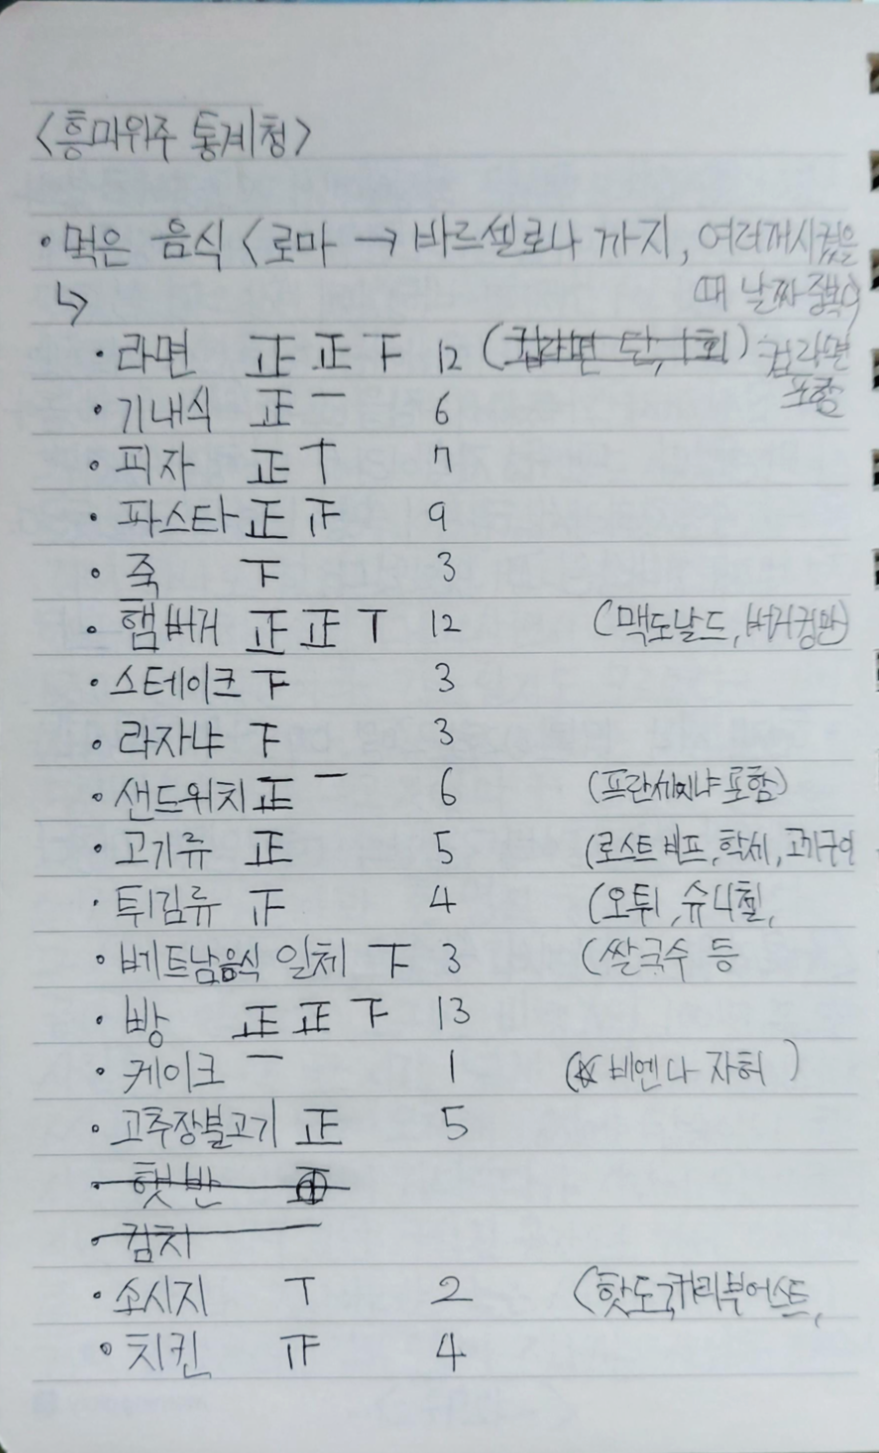 <흥미위주 통계청>
· 먹은 음식 <로마 → 바르셀로나 까지, 여러개시켰을
↳ 때 날짜
· 라면 正 正 下 12 (컵라면 단, 1회) 컵라면
포함
· 기내식 正 一 6
· 피자 正 丅 7
· 파스타 正 正 9
· 죽 下 3
· 햄버거 正 正 丅 12 (맥도날드, 버거킹만)
· 스테이크 下 3
· 라자냐 下 3
· 샌드위치 正 一 6 (프란세지냐 포함)
· 고기류 正 5 (로스트비프, 학세, 고기구이
· 튀김류 正 4 (오튀, 슈니첼,
· 베트남음식 일체 下 3 (쌀국수 등
· 빵 正 正 下 13
· 케이크 一 1 (비엔나 자허 )
· 고추장불고기 正 5
· 햇반
· 김치
· 소시지 丅 2 (핫도그, 커리부어스트,
· 치킨 正 4